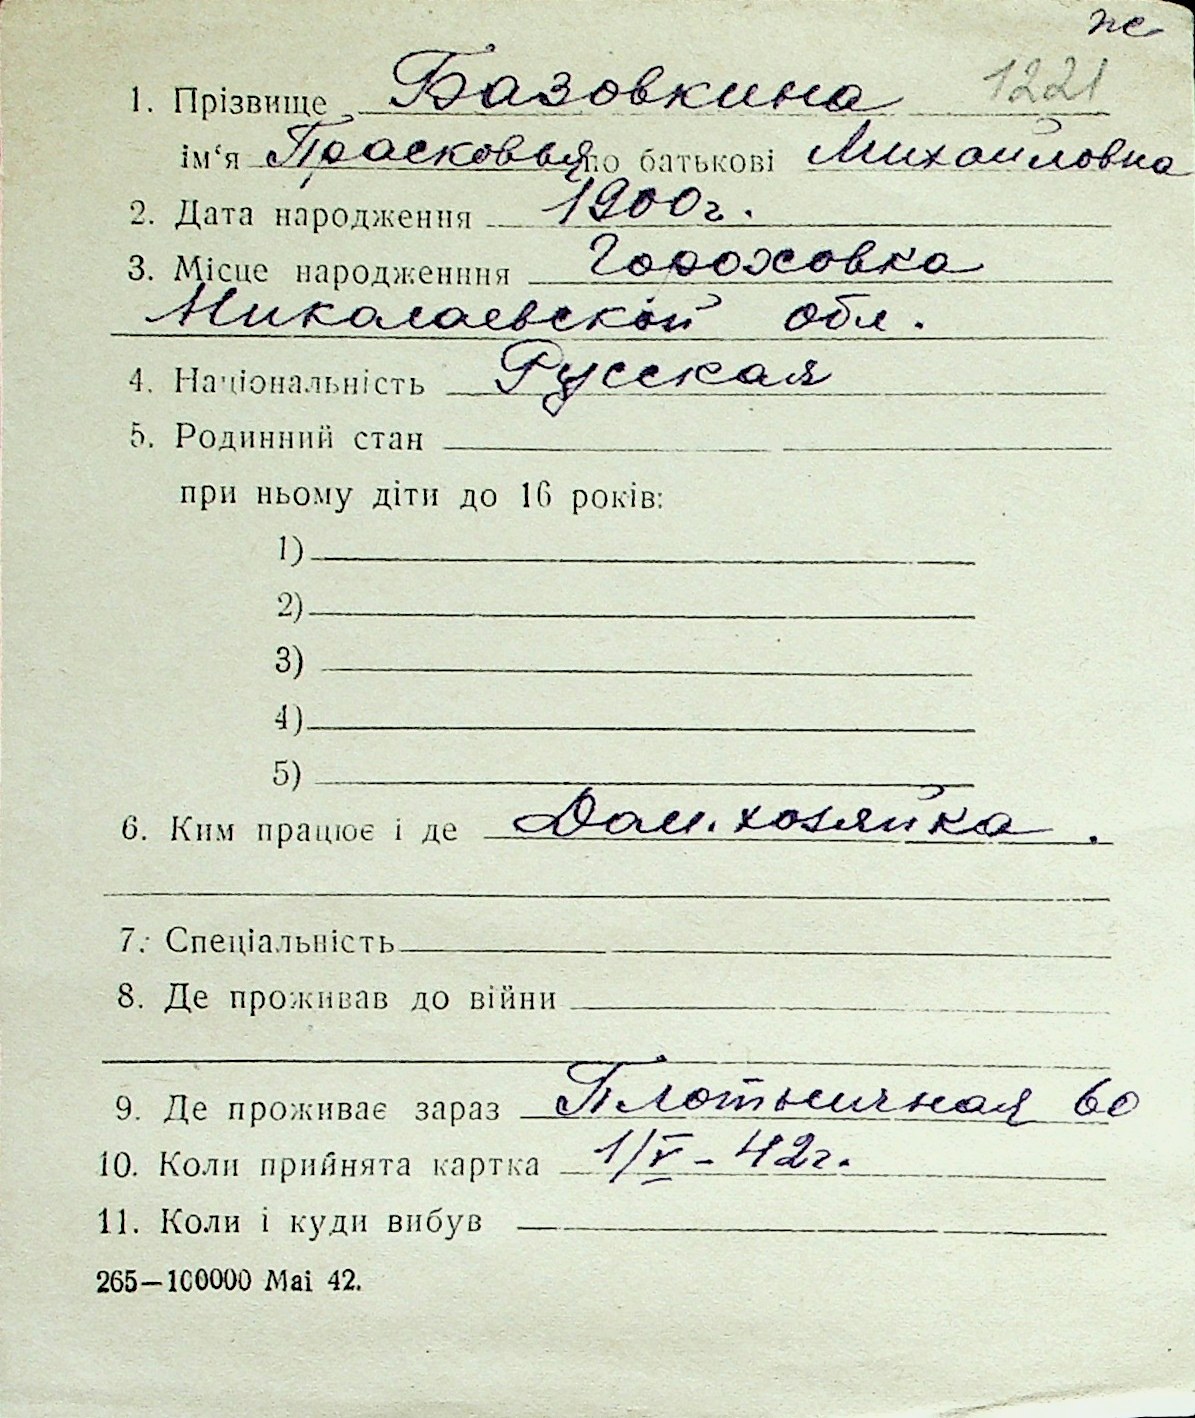 же
1. Прізвище Базовкина 1221
ім‘я Прасковья по батькові Михайловна
2. Дата народження 1900г.
3. Місце народженння Гороховка
Николаевской обл.
4. Національність Русская
5. Родинний стан
при ньому діти до 16 років:
1)
2)
3)
4)
5)
6. Ким працює і де Дом. хозяйка.
7. Спеціальність
8. Де проживав до війни
9. Де проживає зараз Плотничная 60
10. Коли прийнята картка 1/V – 42г.
11. Коли і куди вибув
265—100000 Mai 42.